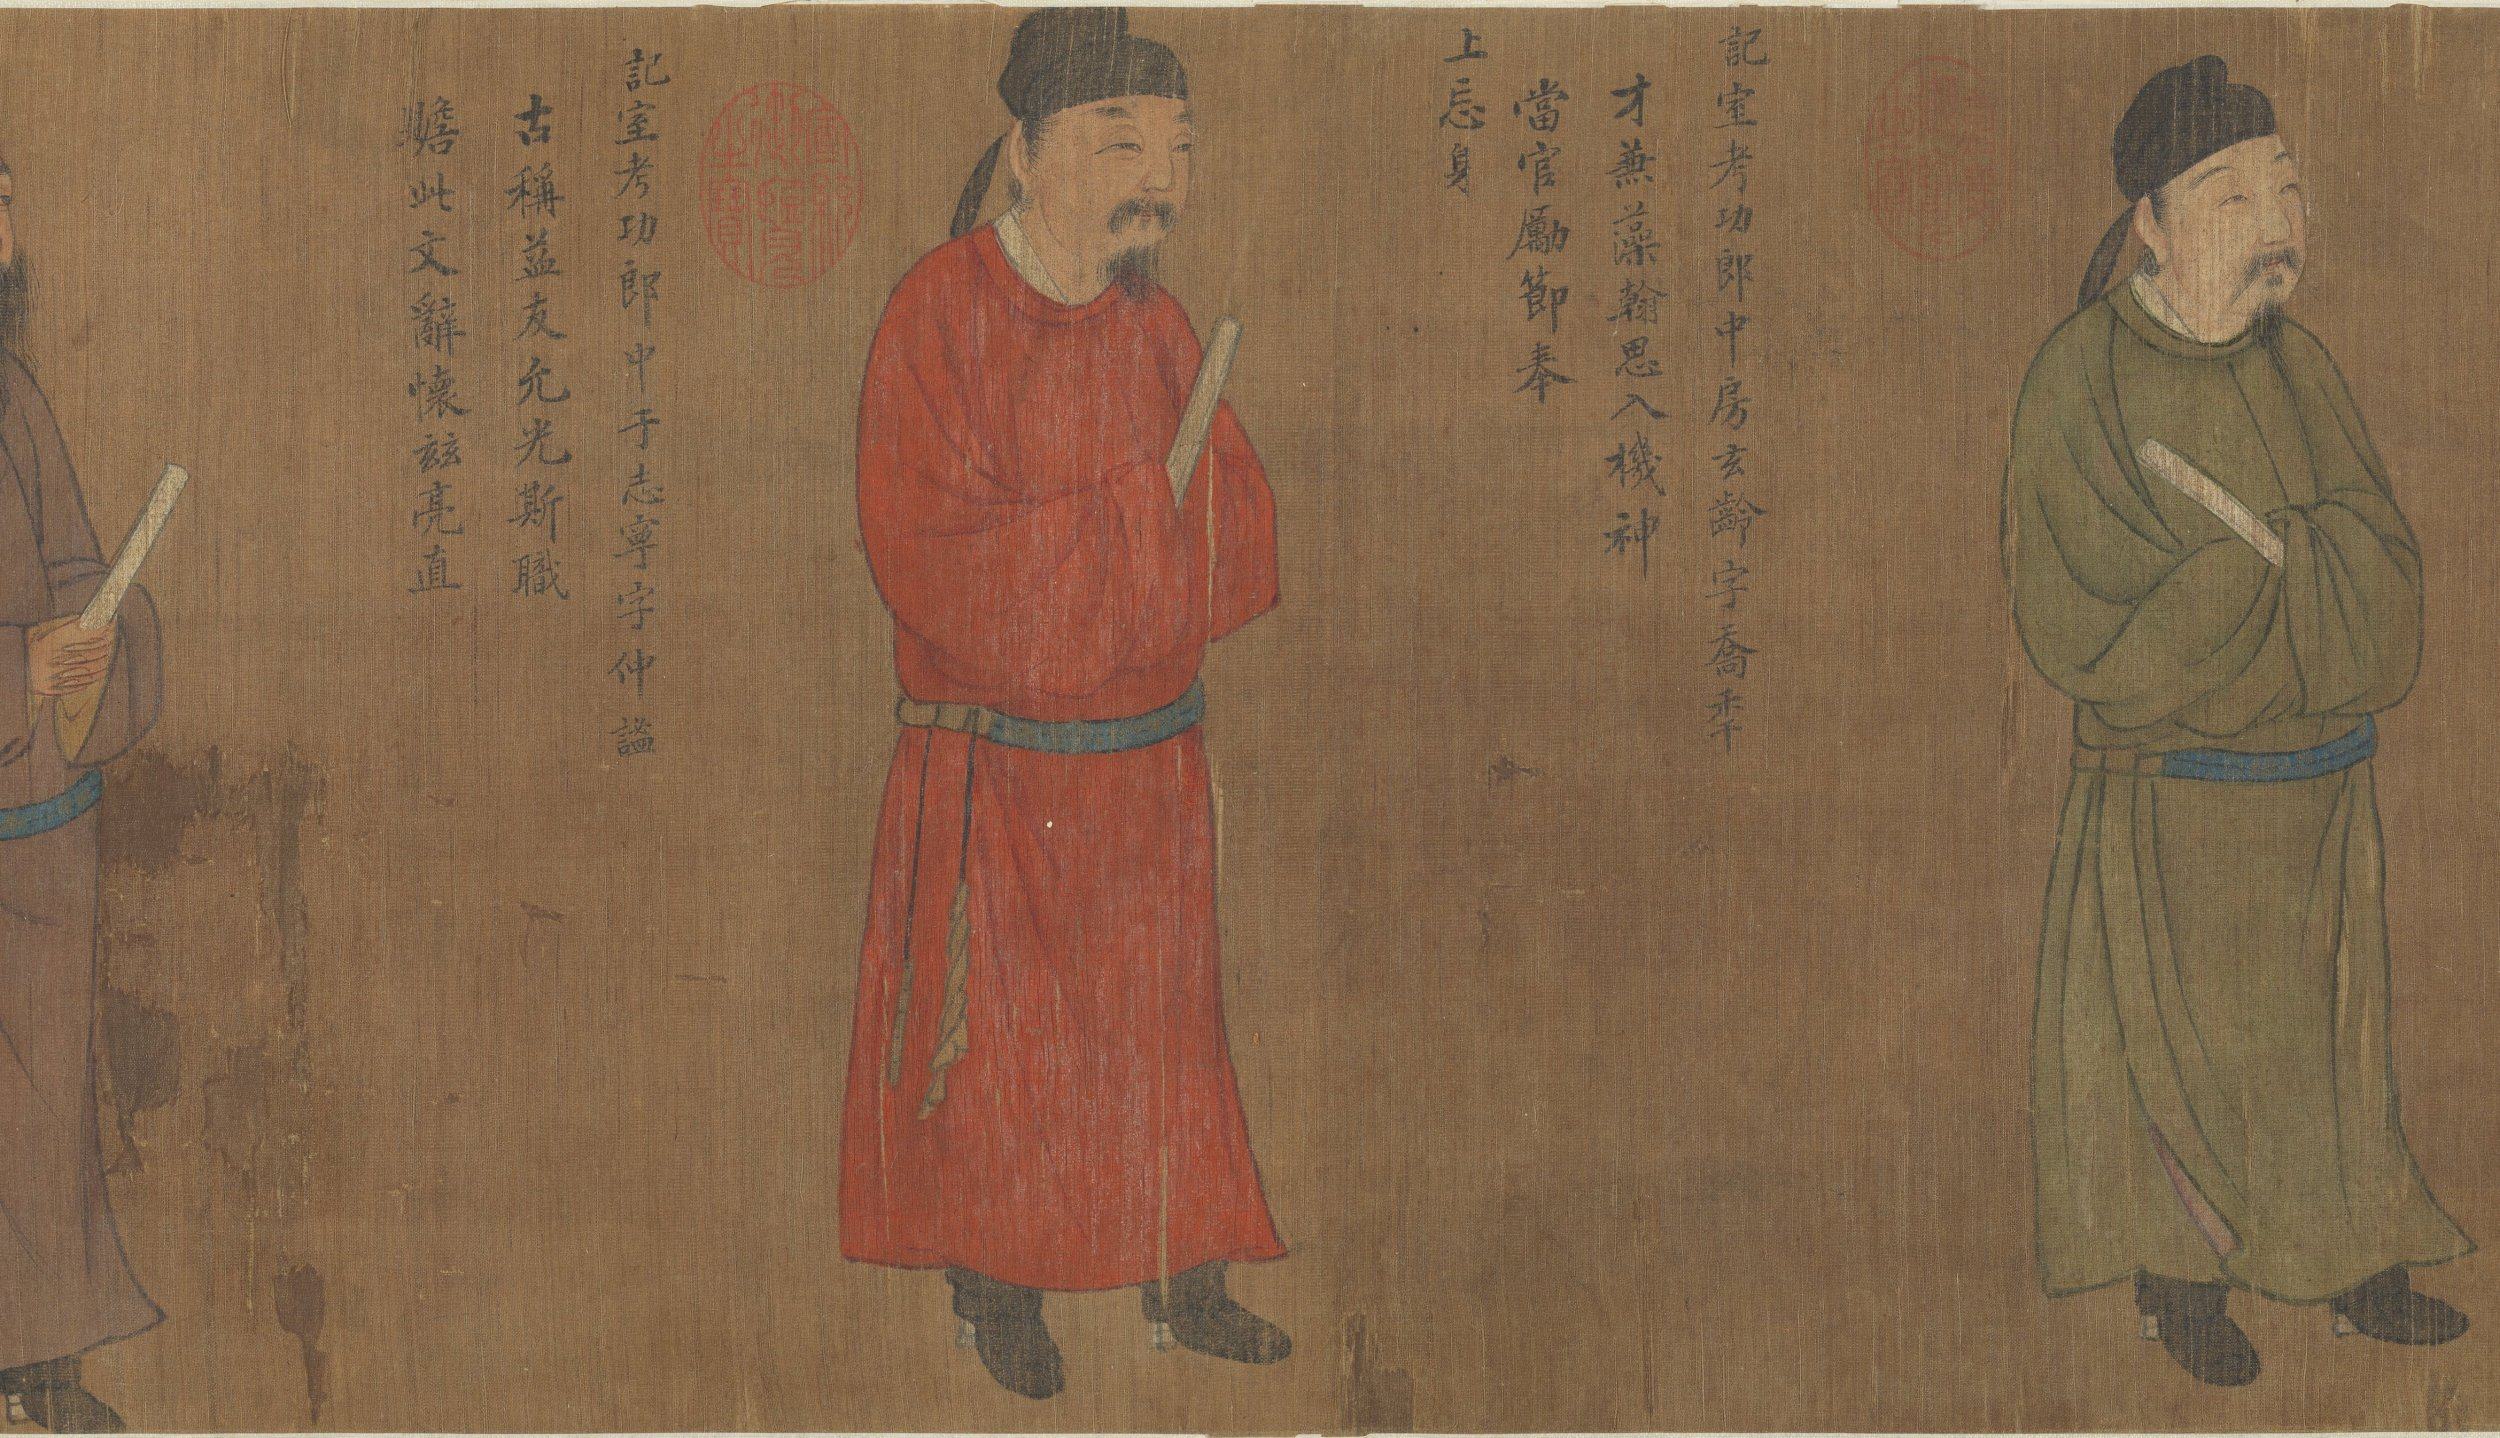 記室考功郎中房玄齡字喬年
才兼藻翰思入機神
當官勵節奉
上忘身
記室考功郎中于志寧字仲謐
古稱益友允光斯職
贍此文辭懷玆亮直